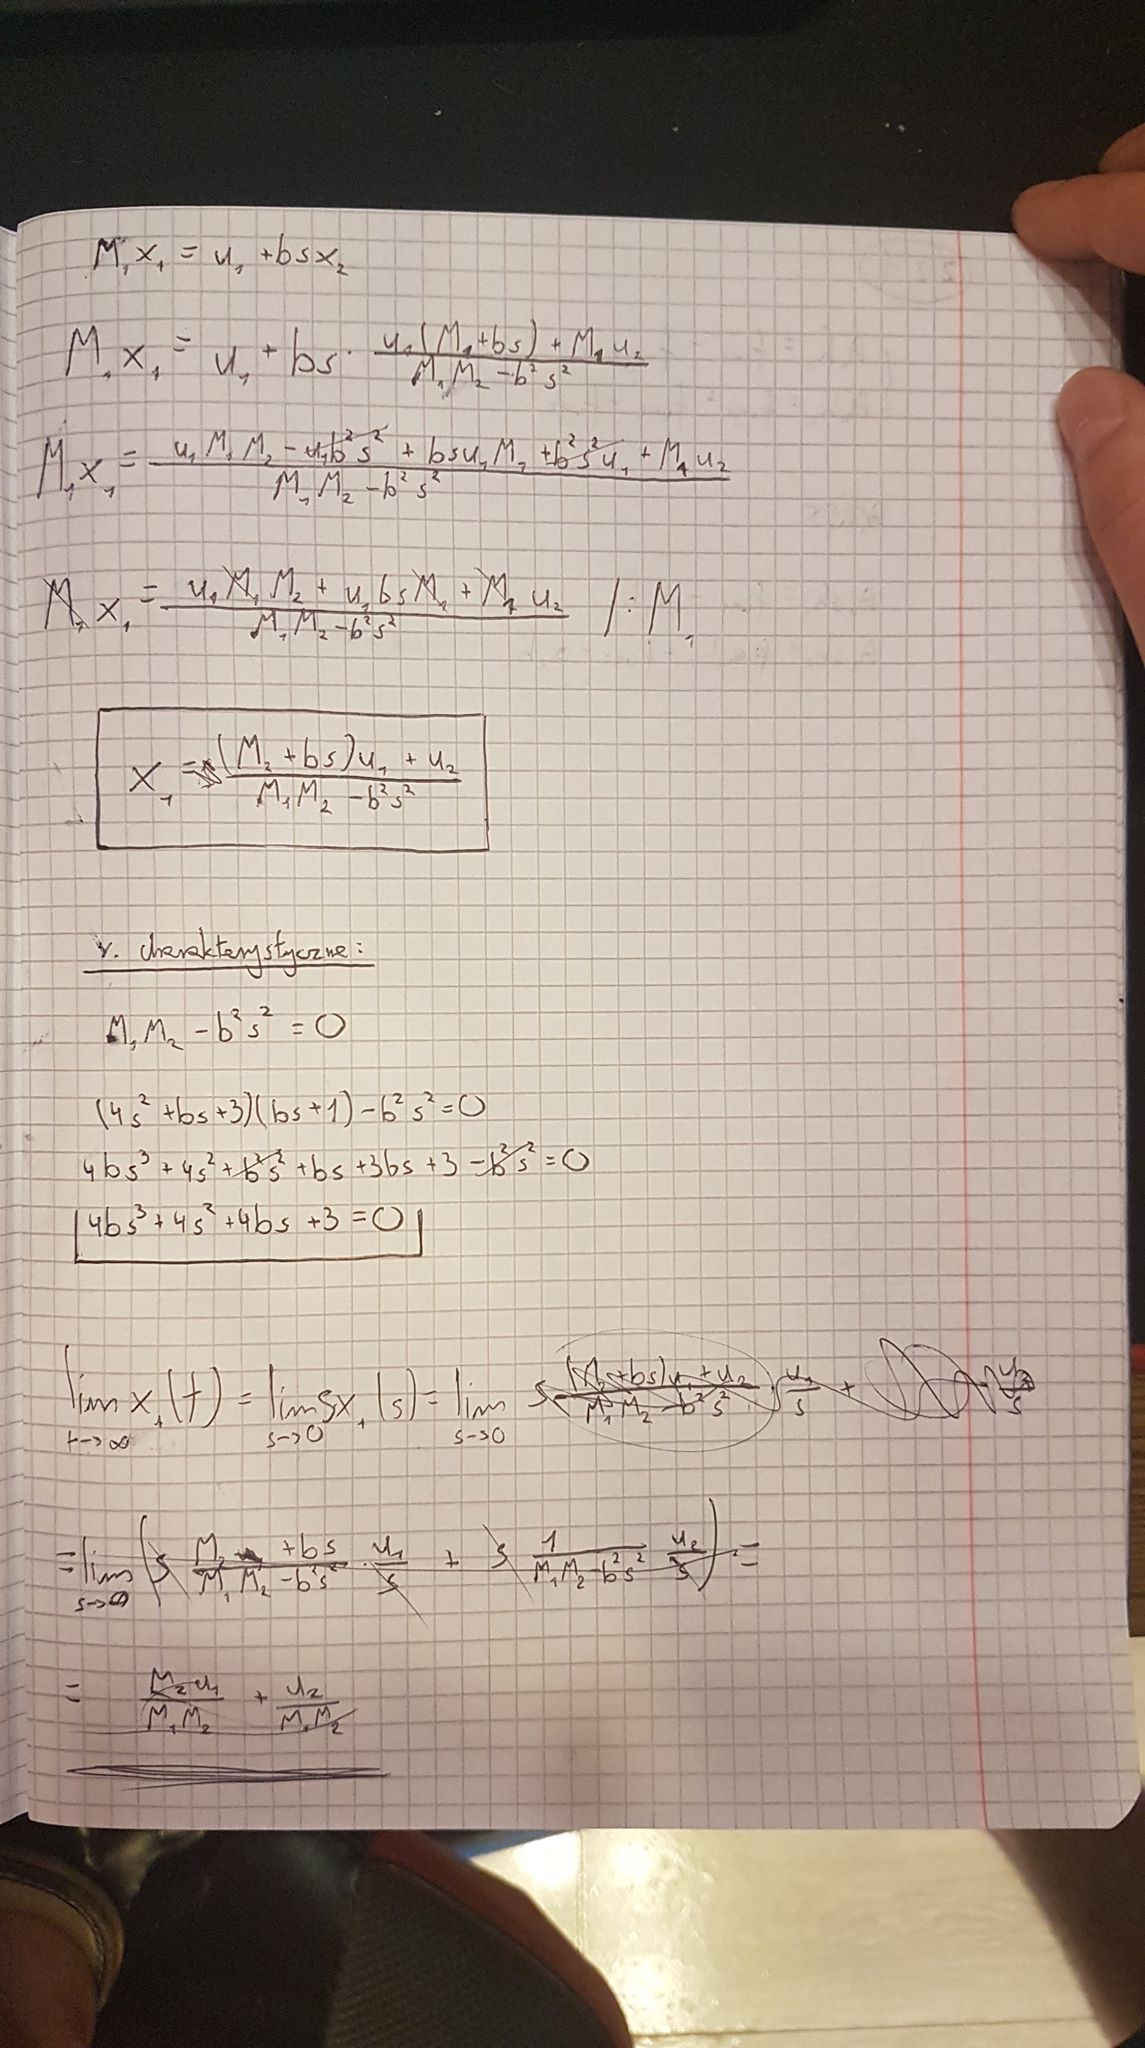 M₁x₁ = u₁ + bsx₂
M₁x₁ = u₁ + bs · (u₁(M₁+bs) + M₁u₂)/(M₁M₂ - b²s²)
M₁x₁ = (u₁M₁M₂ - u₁b²s² + bsu₁M₁ + b²s²u₁ + M₁u₂)/(M₁M₂ - b²s²)
M₁x₁ = (u₁M₁M₂ + u₁bsM₁ + M₁u₂)/(M₁M₂ - b²s²) /:M₁
x₁ = ((M₂+bs)u₁ + u₂)/(M₁M₂ - b²s²)
r. charakterystyczne:
M₁M₂ - b²s² = 0
(4s² + bs + 3)(bs + 1) - b²s² = 0
4bs³ + 4s² + b²s² + bs + 3bs + 3 - b²s² = 0
4bs³ + 4s² + 4bs + 3 = 0
lim t→∞ x₁(t) = lim s→0 sx₁(s) = lim s→0 s ((M₂+bs)u₁+u₂)/(M₁M₂ - b²s²) · u₁/s + · u₂/s
= lim s→0 (s (M₂ + bs)/(M₁M₂ - b²s²) · u₁/s + s 1/(M₁M₂ - b²s²) u₂/s) =
= M₂u₁/M₁M₂ + u₂/M₁M₂